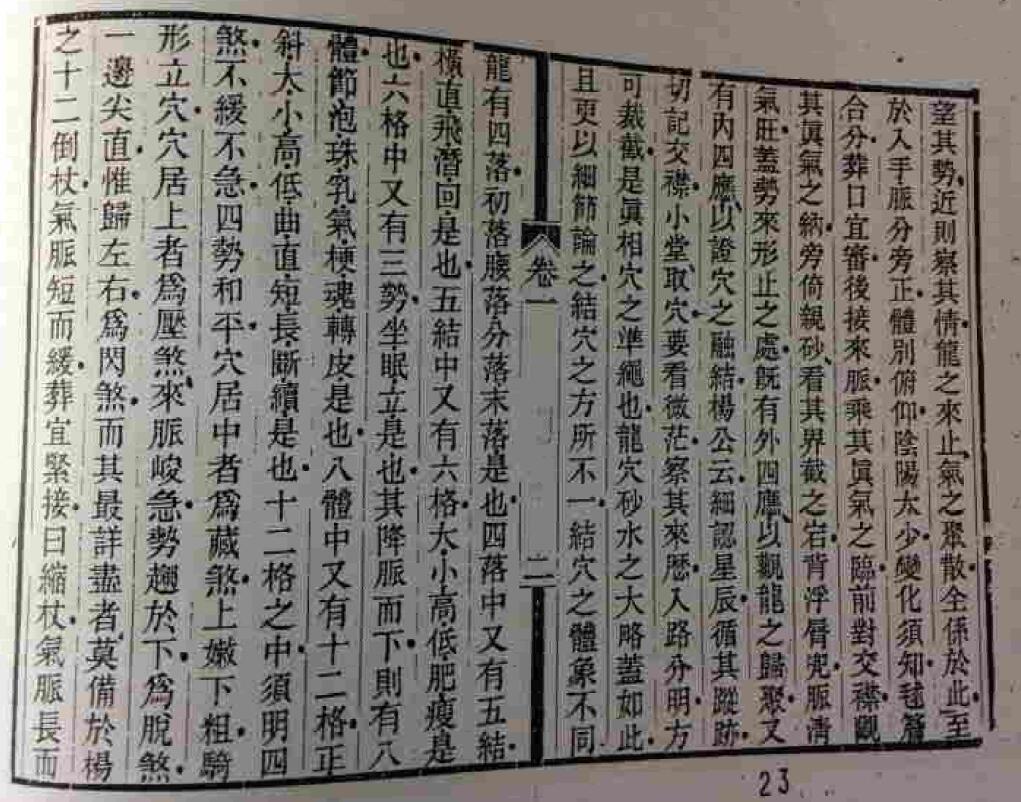 望其勢近則察其情龍之來止氣之聚散全係於此至
於入手脈分旁正體別俯仰陰陽太少變化須知毬簷
合分葬口宜審後接來脈乘其眞氣之臨前對交襟觀
其眞氣之納旁倚親砂看其界截之宕背浮唇兜脈淸
氣旺葢勢來形止之處旣有外四應以觀龍之歸聚又
有內四應以證穴之融結楊公云細認星辰循其蹤跡
切記交襟小堂取穴要看微茫察其來歷入路分明方
可裁截是眞相穴之準繩也龍穴砂水之大略蓋如此
且更以細節論之結穴之方所不一結穴之體象不同
卷一
二
龍有四落初落腰落分落末落是也四落中又有五結
橫直飛潛回是也五結中又有六格大小高低肥瘦是
也六格中又有三勢坐眠立是也其降脈而下則有八
體節泡珠乳氣梗魂轉皮是也八體中又有十二格正
斜大小高低曲直短長斷續是也十二格之中須明四
煞不緩不急四勢和平穴居中者爲藏煞上嫩下粗騎
形立穴穴居上者爲壓煞來脈峻急勢趨於下爲脫煞
一邊尖直惟歸左右爲閃煞而其最詳盡者莫備於楊
之十二倒杖氣脈短而緩葬宜緊接曰縮杖氣脈長而
23